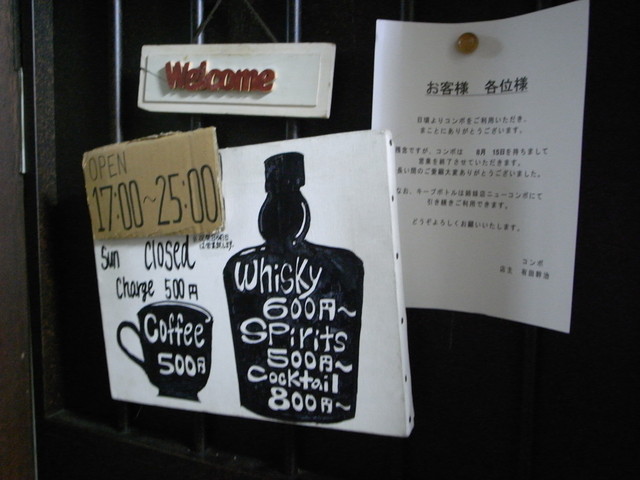 Welcome
OPEN
17:00~25:00
Sun Closed
Charge 500円
Coffee
500円
Whisky
600円~
Spirits
500円~
Cocktail
800円~
お客様 各位様
日頃よりコンボをご利用いただき、
まことにありがとうございます。
残念ですが、コンボは 8月 15日を持ちまして
営業を終了させていただきます。
長い間のご愛顧大変ありがとうございました。
なお、キープボトルは姉妹店ニューコンボにて
引き続きご利用できます。
どうぞよろしくお願いいたします。
コンボ
店主